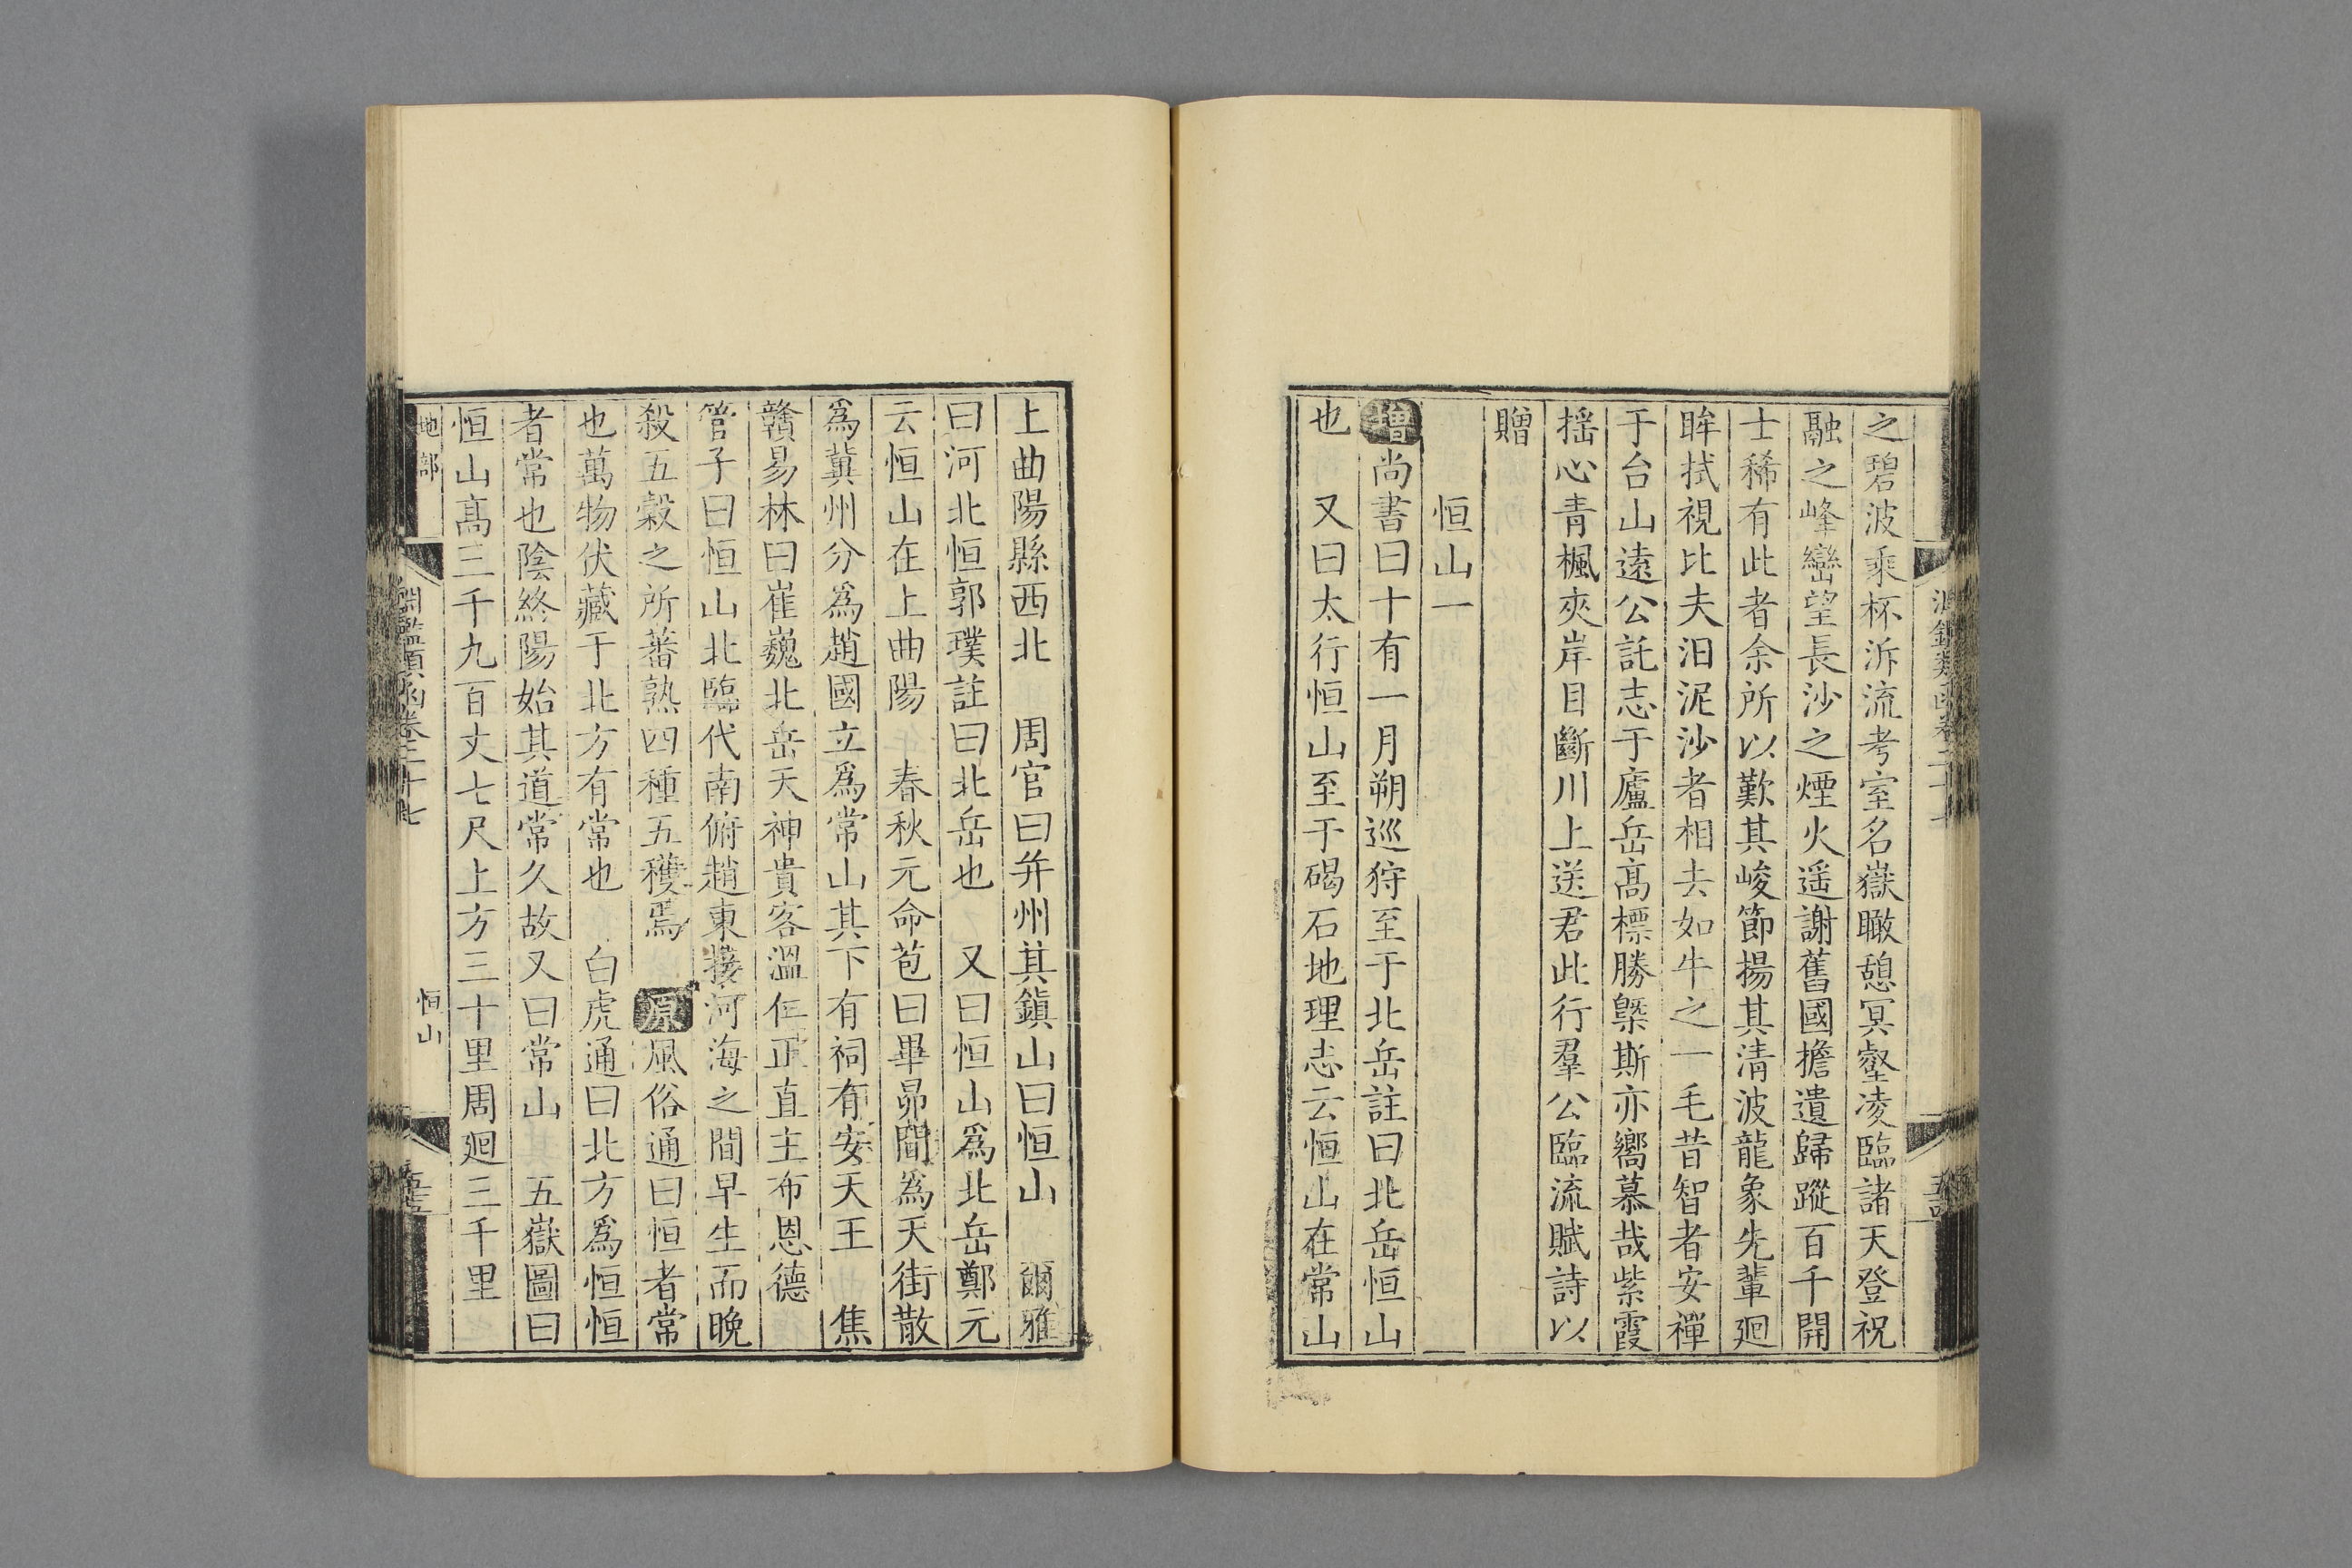 之碧波乘杯泝流考室名嶽瞰憩冥壑凌臨諸天登祝
融之峰巒望長沙之煙火遥謝舊國擔遺歸蹤百千開
士稀有此者余所以歎其峻節揚其清波龍象先輩廻
眸拭視比夫汨泥沙者相去如牛之一毛昔智者安禪
于台山遠公託志于廬岳高標勝槩斯亦嚮慕哉紫霞
揺心青楓夾岸目斷川上送君此行羣公臨流賦詩以
贈
恒山一
增尚書曰十有一月朔巡狩至于北岳註曰北岳恒山
也 又曰太行恒山至于碣石地理志云恒山在常山
上曲陽縣西北 周官曰并州其鎮山曰恒山 爾雅
曰河北恒郭璞註曰北岳也 又曰恒山爲北岳鄭元
云恒山在上曲陽 春秋元命苞曰畢昴間爲天街散
爲冀州分爲趙國立爲常山其下有祠有安天王 焦
贛易林曰崔巍北岳天神貴客溫仁正直主布恩德
管子曰恒山北臨代南俯趙東接河海之間早生而晩
殺五穀之所蕃熟四種五穫焉 原風俗通曰恒者常
也萬物伏藏于北方有常也 白虎通曰北方爲恒恒
者常也陰終陽始其道常久故又曰常山 五嶽圖曰
恒山高三千九百丈七尺上方三十里周廻三千里
地部 淵鑑類函卷二十七 恒山